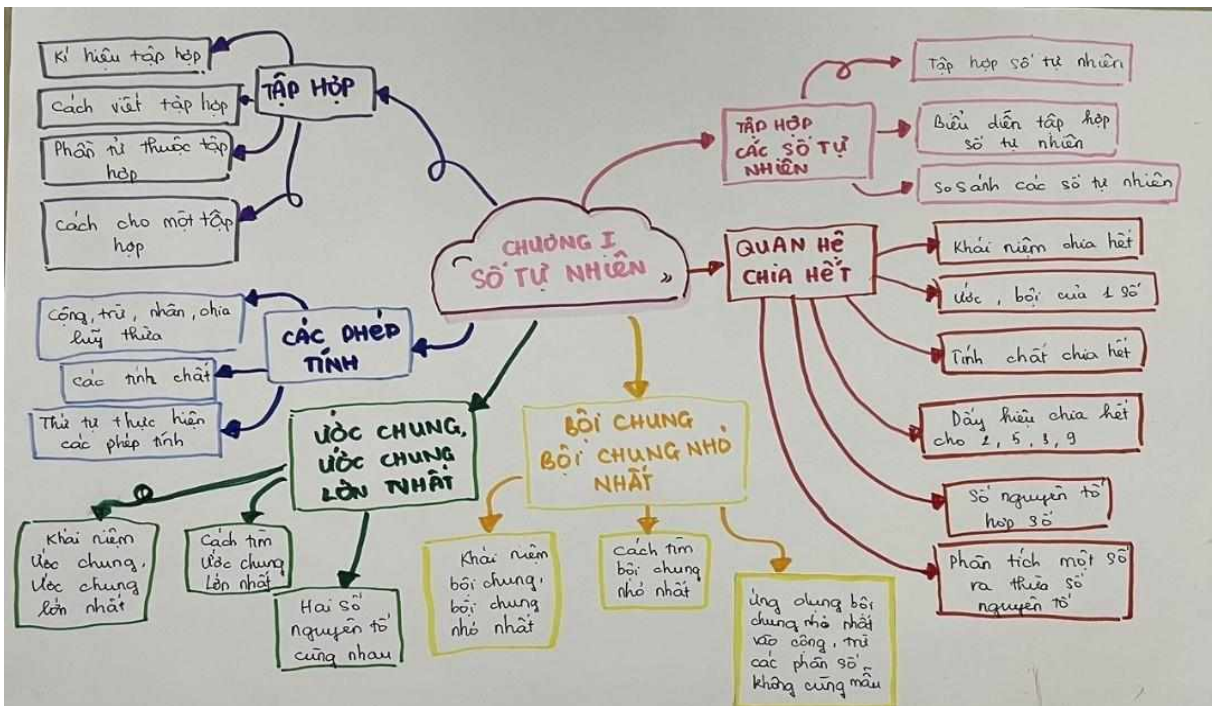 CHƯƠNG I
SỐ TỰ NHIÊN
TẬP HỢP
Kí hiệu tập hợp
Cách viết tập hợp
Phần tử thuộc tập
hợp
Cách cho một tập
hợp
TẬP HỢP
CÁC SỐ TỰ
NHIÊN
Tập hợp số tự nhiên
Biểu diễn tập hợp
số tự nhiên
So sánh các số tự nhiên
QUAN HỆ
CHIA HẾT
Khái niệm chia hết
Ước, bội của 1 số
Tính chất chia hết
Dấy hiệu chia hết
cho 2, 5, 3, 9
Số nguyên tố
hợp số
Phân tích một số
ra thừa số
nguyên tố
CÁC PHÉP
TÍNH
Cộng, trừ, nhân, chia
luỹ thừa
Các tính chất
Thứ tự thực hiện
các phép tính
ƯỚC CHUNG,
ƯỚC CHUNG
LỚN NHẤT
Khái niệm
Ước chung,
Ước chung
lớn nhất
Cách tìm
Ước chung
Lớn nhất
Hai số
nguyên tố
cùng nhau
BỘI CHUNG
BỘI CHUNG NHỎ
NHẤT
Khái niệm
bội chung,
bội chung
nhỏ nhất
Cách tìm
bội chung
nhỏ nhất
Ứng dụng bội
chung nhỏ nhất
vào cộng, trừ
các phân số
không cùng mẫu